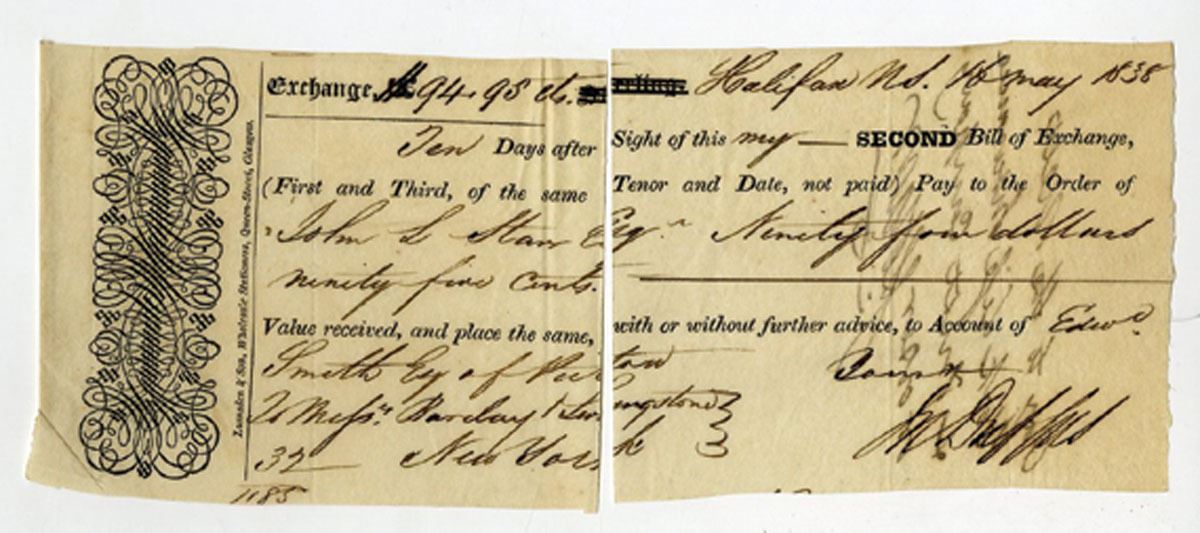 Lumsden & Son, Wholesale Stationers, Queen-Street, Glasgow.
Exchange, 94.95 cts. Halifax NS. 16 may 1838
Ten Days after Sight of this my — SECOND Bill of Exchange,
(First and Third, of the same Tenor and Date, not paid) Pay to the Order of
John L Starr Esqr Ninety four dollars
ninety five Cents.
Value received, and place the same, with or without further advice, to Account of Edwd
Smith Esq of
To Messrs Barclay & Livingstone
37 New York
1185